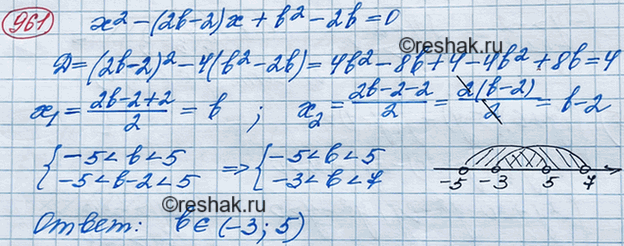 961 x² - (2b-2)x + b² - 2b = 0
©reshak.ru
D = (2b-2)² - 4(b² - 2b) = 4b² - 8b + 4 - 4b² + 8b = 4
x₁ = (2b-2+2)/2 = b ; x₂ = (2b-2-2)/2 = 2(b-2)/2 = b-2
{ -5 < b < 5 ⇒ { -5 < b < 5
{ -5 < b-2 < 5 { -3 < b < 7
-5 -3 5 7
Ответ: b ∈ (-3; 5)
©reshak.ru